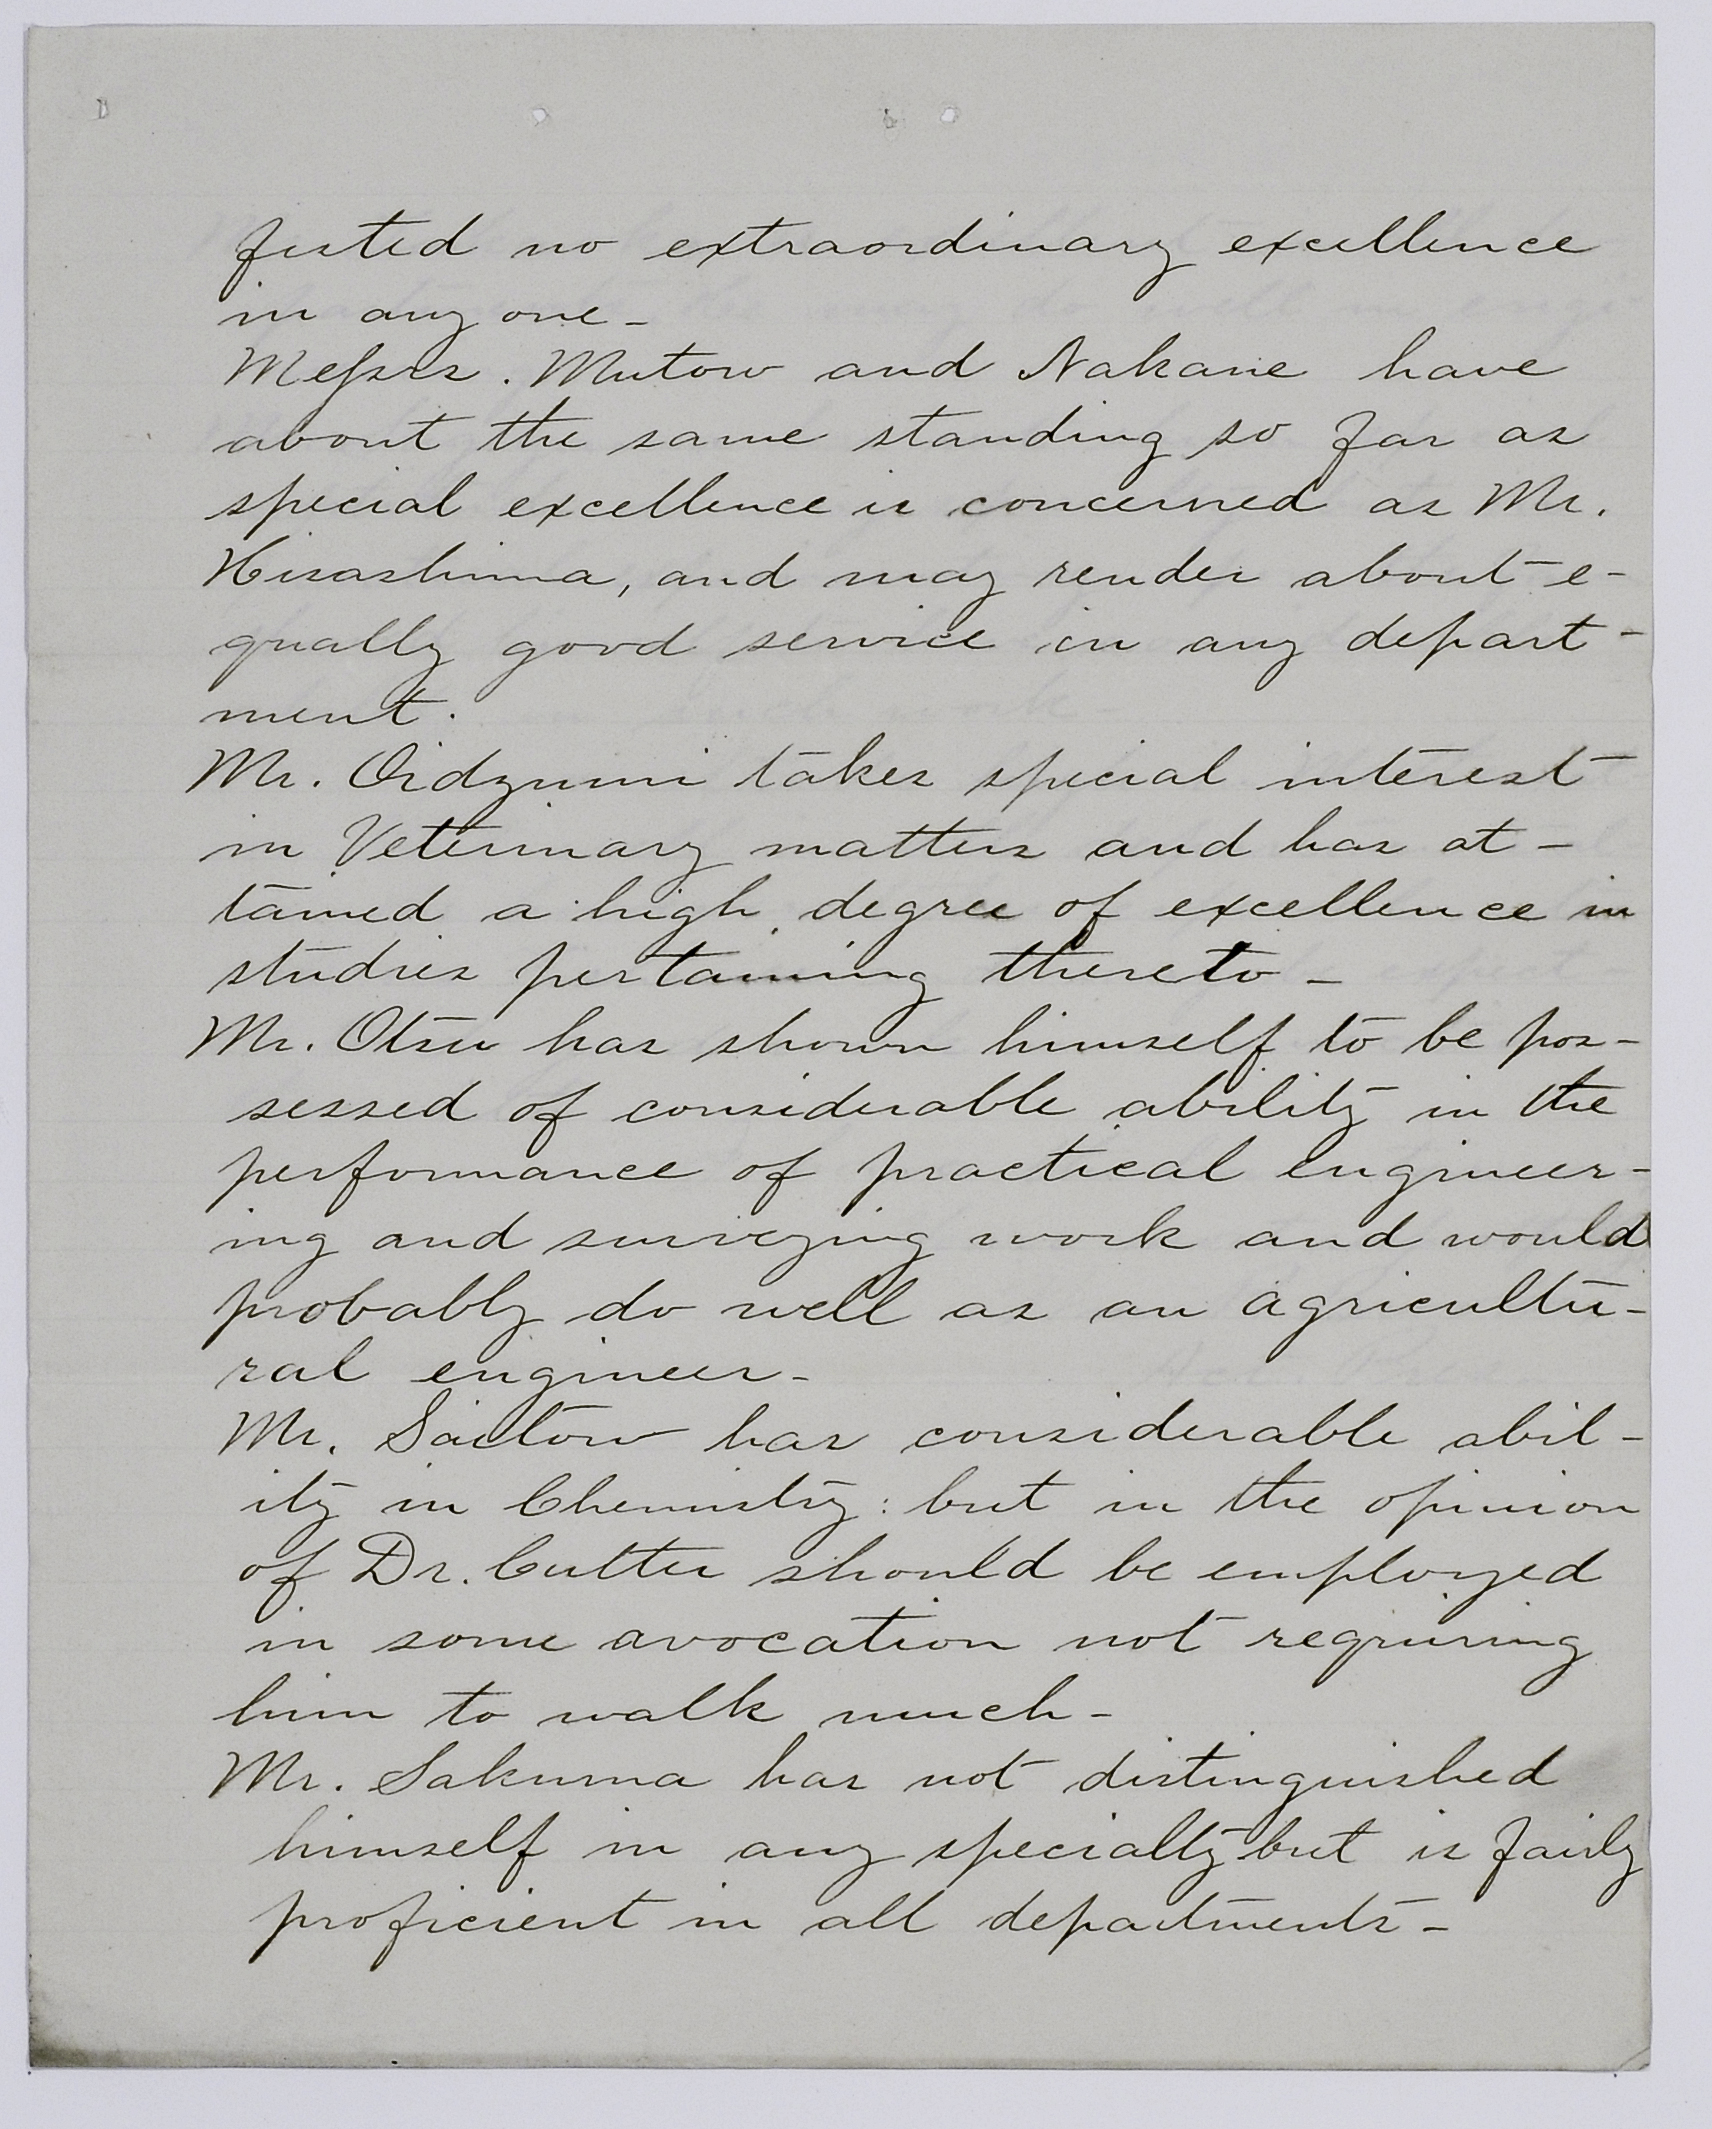 fested no extraordinary excellence
in any one -
Messrs. Mutow and Nakane have
about the same standing so far as
special excellence is concerned as Mr.
Hisashima, and may render about e-
qually good service in any depart-
ment.
Mr. Oidzumi takes special interest
in Veterinary matters and has at-
tained a high degree of excellence in
studies pertaining thereto -
Mr. Otsu has shown himself to be pos-
sessed of considerable ability in the
performance of practical engineer-
ing and surveying work and would
probably do well as an agricultu-
ral engineer -
Mr. Saitow has considerable abil-
ity in Chemistry: but in the opinion
of Dr. Cutter should be employed
in some avocation not requiring
him to walk much -
Mr. Sakuma has not distinguished
himself in any specialty but is fairly
proficient in all departments -